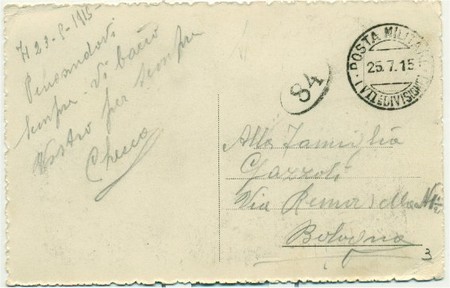 23-8-1915
Pensandovi
sempre vi bacio
Vostro per sempre
Checco
84
POSTA MILITARE
25.7.15
DIVISIONE
Alla Famiglia
Gazzoli
Via
Bologna
3